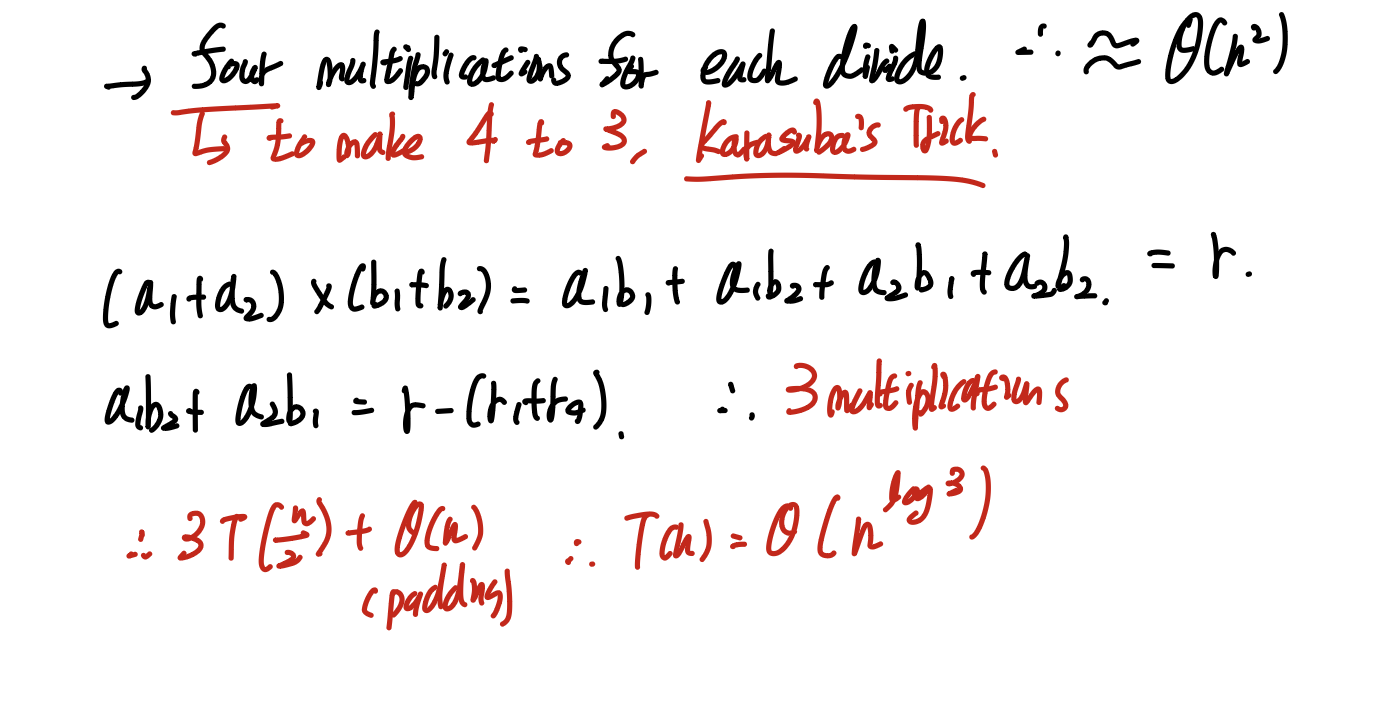 → four multiplications for each divide. ∴ ≈ θ(n²)
↳ to make 4 to 3, Karasuba's Trick.
(a₁+a₂) × (b₁+b₂) = a₁b₁ + a₁b₂ + a₂b₁ + a₂b₂. = r.
a₁b₂ + a₂b₁ = r - (r₁+r₄). ∴ 3 multiplications
∴ 3T(n/2) + θ(n) ∴ T(n) = θ(n^log 3)
(padding)